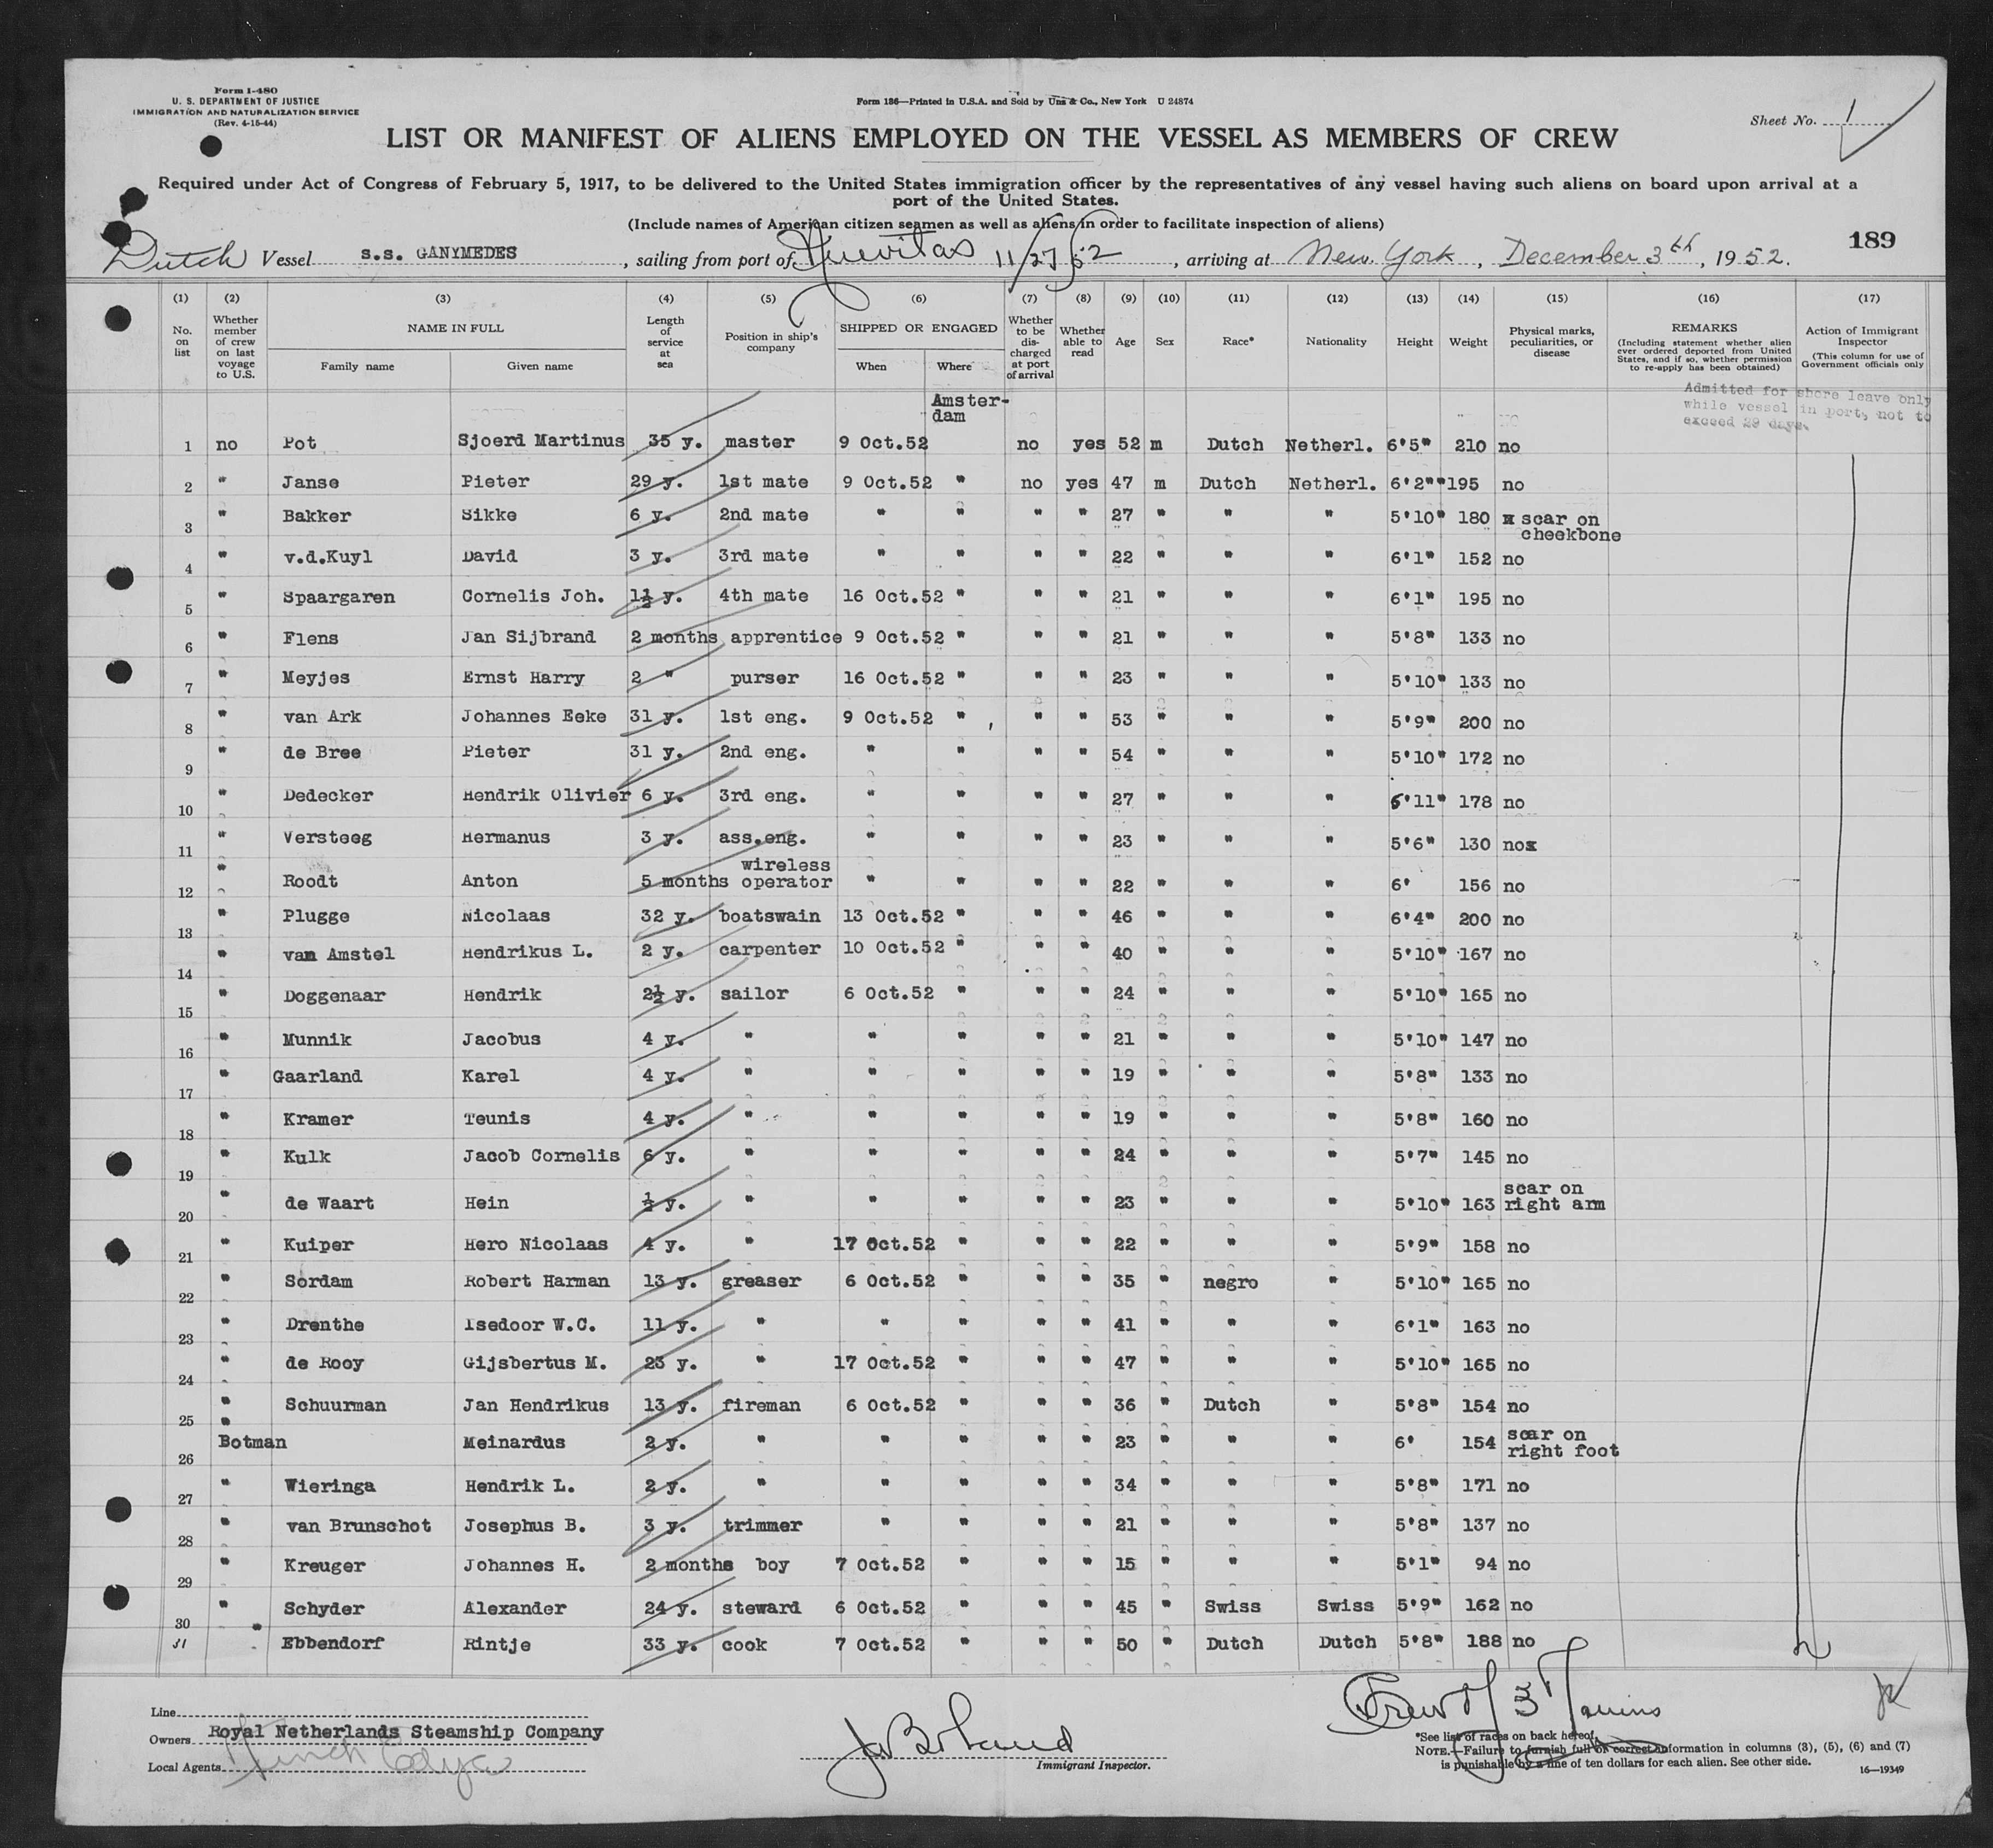 Form I-480
U. S. DEPARTMENT OF JUSTICE
IMMIGRATION AND NATURALIZATION SERVICE
(Rev. 4-15-44)
Form 186—Printed in U.S.A. and Sold by Unz & Co., New York U 24874
Sheet No. 1
LIST OR MANIFEST OF ALIENS EMPLOYED ON THE VESSEL AS MEMBERS OF CREW
Required under Act of Congress of February 5, 1917, to be delivered to the United States immigration officer by the representatives of any vessel having such aliens on board upon arrival at a
port of the United States.
(Include names of American citizen seamen as well as aliens in order to facilitate inspection of aliens)
189
Dutch Vessel s.s. GANYMEDES, sailing from port of Nuevitas 11/27/52, arriving at New York, December 3th, 1952.
(1) (2) (3) (4) (5) (6) (7) (8) (9) (10) (11) (12) (13) (14) (15) (16) (17)
No. on list
Whether member of crew on last voyage to U.S.
NAME IN FULL
Family name Given name
Length of service at sea
Position in ship's company
SHIPPED OR ENGAGED
When Where
Whether to be discharged at port of arrival
Whether able to read
Age
Sex
Race*
Nationality
Height
Weight
Physical marks, peculiarities, or disease
REMARKS
(Including statement whether alien ever ordered deported from United States, and if so, whether permission to re-apply has been obtained)
Action of Immigrant Inspector
(This column for use of Government officials only
Admitted for shore leave only
while vessel in port, not to
exceed 29 days.
Amster-
dam
1 no Pot Sjoerd Martinus 35 y. master 9 Oct.52 no yes 52 m Dutch Netherl. 6'5" 210 no
2 " Janse Pieter 29 y. 1st mate 9 Oct.52 " no yes 47 m Dutch Netherl. 6'2" "195 no
3 " Bakker Sikke 6 y. 2nd mate " " " " 27 " " " 5'10" 180 x scar on
cheekbone
4 " v.d.Kuyl David 3 y. 3rd mate " " " " 22 " " " 6'1" 152 no
5 " Spaargaren Cornelis Joh. 1½ y. 4th mate 16 Oct.52 " " " 21 " " " 6'1" 195 no
6 " Flens Jan Sijbrand 2 months apprentice 9 Oct.52 " " " 21 " " " 5'8" 133 no
7 " Meyjes Ernst Harry 2 " purser 16 Oct.52 " " " 23 " " " 5'10" 133 no
8 " van Ark Johannes Eeke 31 y. 1st eng. 9 Oct.52 " " " 53 " " " 5'9" 200 no
9 " de Bree Pieter 31 y. 2nd eng. " " " " 54 " " " 5'10" 172 no
10 " Dedecker Hendrik Olivier 6 y. 3rd eng. " " " " 27 " " " 11" 178 no
11 " Versteeg Hermanus 3 y. ass.eng. " " " " 23 " " " 5'6" 130 nox
wireless
12 " Roodt Anton 5 months operator " " " " 22 " " " 6' 156 no
13 " Plugge Nicolaas 32 y. boatswain 13 Oct.52 " " " 46 " " " 6'4" 200 no
14 " van Amstel Hendrikus L. 2 y. carpenter 10 Oct.52 " " " 40 " " " 5'10" 167 no
15 " Doggenaar Hendrik 2½ y. sailor 6 Oct.52 " " " 24 " " " 5'10" 165 no
16 " Munnik Jacobus 4 y. " " " " " 21 " " " 5'10" 147 no
17 " Gaarland Karel 4 y. " " " " " 19 " " " 5'8" 133 no
18 " Kramer Teunis 4 y. " " " " " 19 " " " 5'8" 160 no
19 " Kulk Jacob Cornelis 6 y. " " " " " 24 " " " 5'7" 145 no
scar on
20 " de Waart Hein ½ y. " " " " " 23 " " " 5'10" 163 right arm
21 " Kuiper Hero Nicolaas 4 y. " 17 Oct.52 " " " 22 " " " 5'9" 158 no
22 " Sordam Robert Harman 13 y. greaser 6 Oct.52 " " " 35 " negro " 5'10" 165 no
23 " Drenthe Isedoor W.C. 11 y. " " " " " 41 " " " 6'1" 163 no
24 " de Rooy Gijsbertus M. 23 y. " 17 Oct.52 " " " 47 " " " 5'10" 165 no
25 " Schuurman Jan Hendrikus 13 y. fireman 6 Oct.52 " " " 36 " Dutch " 5'8" 154 no
26 " Botman Meinardus 2 y. " " " " " 23 " " " 6' 154 scar on
right foot
27 " Wieringa Hendrik L. 2 y. " " " " " 34 " " " 5'8" 171 no
28 " van Brunschot Josephus B. 3 y. trimmer " " " " 21 " " " 5'8" 137 no
29 " Kreuger Johannes H. 2 months boy 7 Oct.52 " " " 15 " " " 5'1" 94 no
30 " Schyder Alexander 24 y. steward 6 Oct.52 " " " 45 " Swiss Swiss 5'9" 162 no
31 " Ebbendorf Rintje 33 y. cook 7 Oct.52 " " " 50 " Dutch Dutch 5'8" 188 no
Line
Owners Royal Netherlands Steamship Company
Local Agents
Immigrant Inspector.
*See list of races on back hereof.
NOTE.—Failure to furnish full or correct information in columns (3), (5), (6) and (7)
is punishable by a fine of ten dollars for each alien. See other side.
16—19349